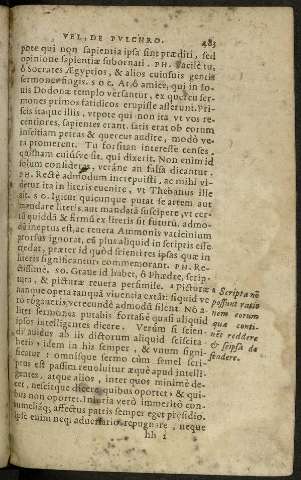 VEL, DE PVLCHRO. 483
pote qui non sapientia ipsa sint præditi, sed
opinione sapientiæ subornati. PH. Facile tu,
ô Socrates Ægyptios, & alios cuiusuis gentis
sermones fingis. SO C. At ô amice, qui in Io-
uis Dodonæ templo versantur, ex quercu ser-
mones primos fatidicos erupisse asserunt. Pri-
scis itaque illis, vtpote qui non ita vt vos re-
centiores, sapientes erant, satis erat ob eorum
inscitiam petras & quercus audire, modò ve-
ra promerent. Tu forsitan interesse censes,
quisnam cuiusve sit, qui dixerit. Non enim id
solùm consideras, veráne an falsa dicantur.
PH. Rectè admodum increpuisti, ac mihi vi-
detur ita in literis euenire, vt Thebanus ille
ait. SO. Igitur quicunque putat se artem aut
mandare literis, aut mandatā suscipere, vt cer-
tū quiddā & firmū ex literis sit futurū, admo-
dū ineptus est, ac reuera Ammonis vaticinium
prorsus ignorat,
literis significantur commemorant. PH. Re-
ctissimè. SO. Graue id habet, ô Phædre, scrip-
tura, & picturæ reuera persimile. a picturæ
nanque opera tanquā viuentia extāt: siquid ve
rò rogaueris, verecundè admodū silent. Nō a-
liter sermones putabis fortasse quasi aliquid
ipsos intelligentes dicere. Verùm si scien-
di auidus ab iis dictorum aliquid sciscita-
beris, idem in his semper, & vnum signi-
ficatur: omnisque sermo cùm semel scri-
ptus est passim reuoluitur æquè apud intelli-
gentes, atque alios, inter quos minimè de-
cet, nescitque dicere quibus oportet, & qui-
bus non oportet. Iniuria verò immeritò con-
tumeliáq; affectus patris semper eget præsidio.
ipse enim neq; aduersario repugnare, neque
hh 1
a Scripta nō
possunt ratio
nem eorum
quæ conti-
nēt reddere
& seipsa de
fendere.